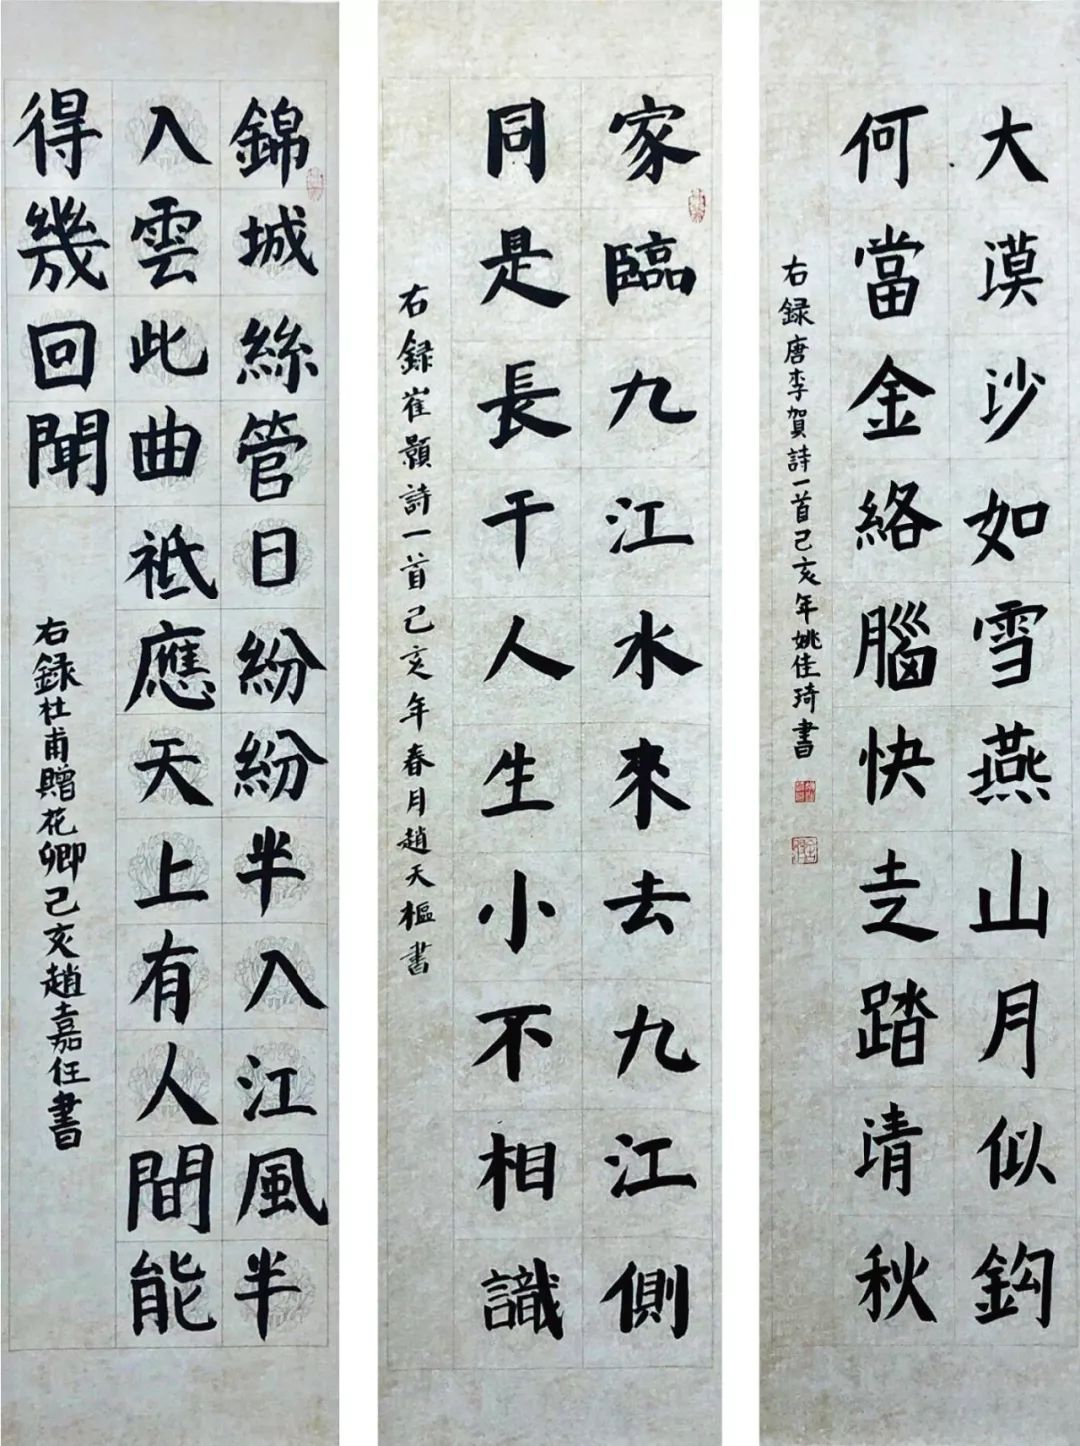 大漠沙如雪燕山月似鈎
何當金絡腦快走踏清秋
右録唐李賀詩一首己亥年姚佳琦書
家臨九江水來去九江側
同是長干人生小不相識
右録崔顥詩一首己亥年春月趙天樞書
錦城絲管日紛紛半入江風半
入雲此曲祗應天上有人間能
得幾回聞
右録杜甫贈花卿己亥趙嘉任書